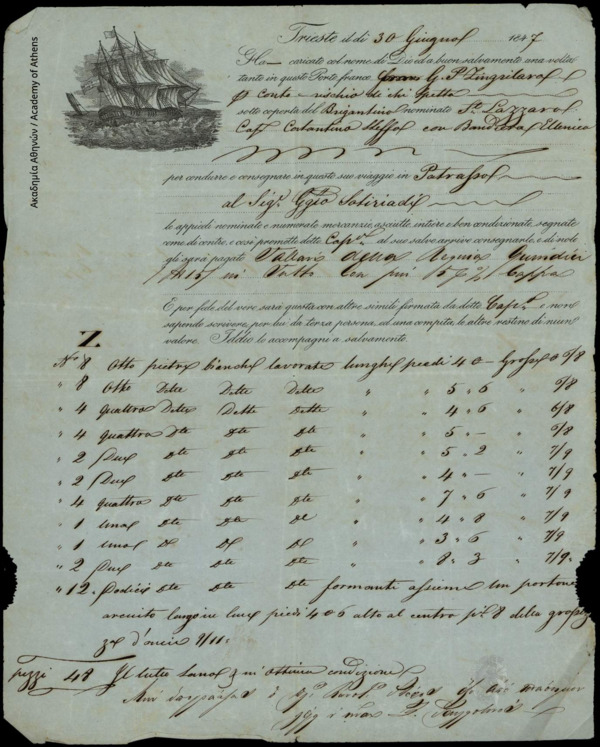 Ακαδημία Αθηνών / Academy of Athens
Trieste il dì 30 Giugno 1847
Ha caricato col nome di Dio ed a buon salvamento una volta
tanto in questo Porto franco G. P. Zingrilara
Conto e rischio di chi Spetta
sotto coperta del Brigantino nominato Sn. Lazzaro
Capn Costantino con Bandiera Ellenica
per condurre e consegnare in questo suo viaggio in Patrasso
al Sigr Sotiriadi
le appiedi nominate e numerate mercanzie, asciutte, intiere e ben condizionate, segnate
come di contro, e così promette detto Capno al suo salvo arrivo consegnarle, e di nolo
gli sarà pagato Tallari della Regina Quindici
in Tutto con più 15 % Cappa
E per fede del vero sarà questa con altre simile firmata da detto Capno e non
sapendo scrivere, per lui da terza persona, ed una compita, le altre restino di niun
valore. Iddio le accompagni a salvamento.
Z
No 8 Otto pietre bianche lavorate lunghe piedi 4 0 Grosse 0 5/8
" 8 Otto Dette Dette Dette " " 5 " 6 " 5/8
" 4 quattro Dette Dette Dette " " 4 " 6 " 6/8
" 4 quattro Dte Dte Dte " " 5 " — " 5/8
" 2 Due Dte Dte Dte " " 5 " 2 " 7/9
" 2 Due Dte Dte Dte " " 4 " — " 7/9
" 4 quattro Dte Dte Dte " " 7 " 6 " 7/9
" 1 una Dte Dte De " " 4 " 8 " 7/9
" 1 una De De De " " 3 " 6 " 7/9
" 2 Due Dte Dte Dte " " 8 " 3 " 7/9
" 12 Dodici Dte Dte Dte formanti assieme un portone
arcuito largo in luce piedi 4 0 6 alto al centro pi. 8 della gross
za d'oncie 9/11
pezzi 48 Il tutto sano & in ottima condizione